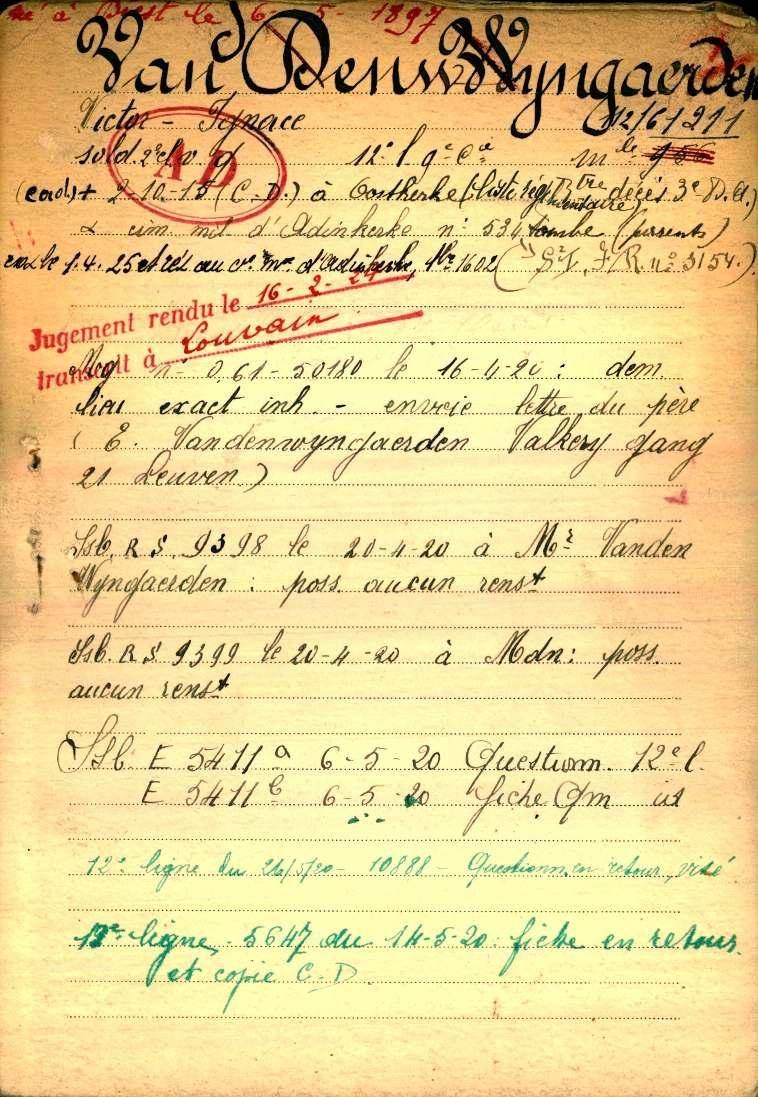 né à Diest le 6-5-1897
Van Den Wyngaerden
Victor - Ignace 112/61211
AD
sold. 2e cl. v. g 12e l ge Cie mle 956
(cad.) + 2-10-15 (C.D.) à Oostkerke (liste rég décès 3e D.A.)
cim. mil d'Adinkerke n° 534 tombe (parents)
le 1.4.25 et au d'Adinkerke, 1602 n° 3154.)
Jugement rendu le 16-2-24
transcrit à Louvain
n° 0,61-50180 le 16-4-20 : dem.
lieu exact inh. - envoie lettre du père
( E. Vandenwyngaerden Valkery gang
21 Leuven )
Ssb. R S. 9398 le 20-4-20 à Mr Vanden
Wyngaerden : poss. aucun renst
Ssb. R S 9399 le 20-4-20 à Mdn : poss.
aucun renst
Ssb. E 5411 a 6-5-20 Questionn. 12e l.
E 5411 b 6-5-20 fiche Qm id
12e ligne du 26/5/20 - 10888 - Questionn. en retour, visé
12e ligne, 5647 du 14-5-20 : fiche en retour.
et copie C-D.